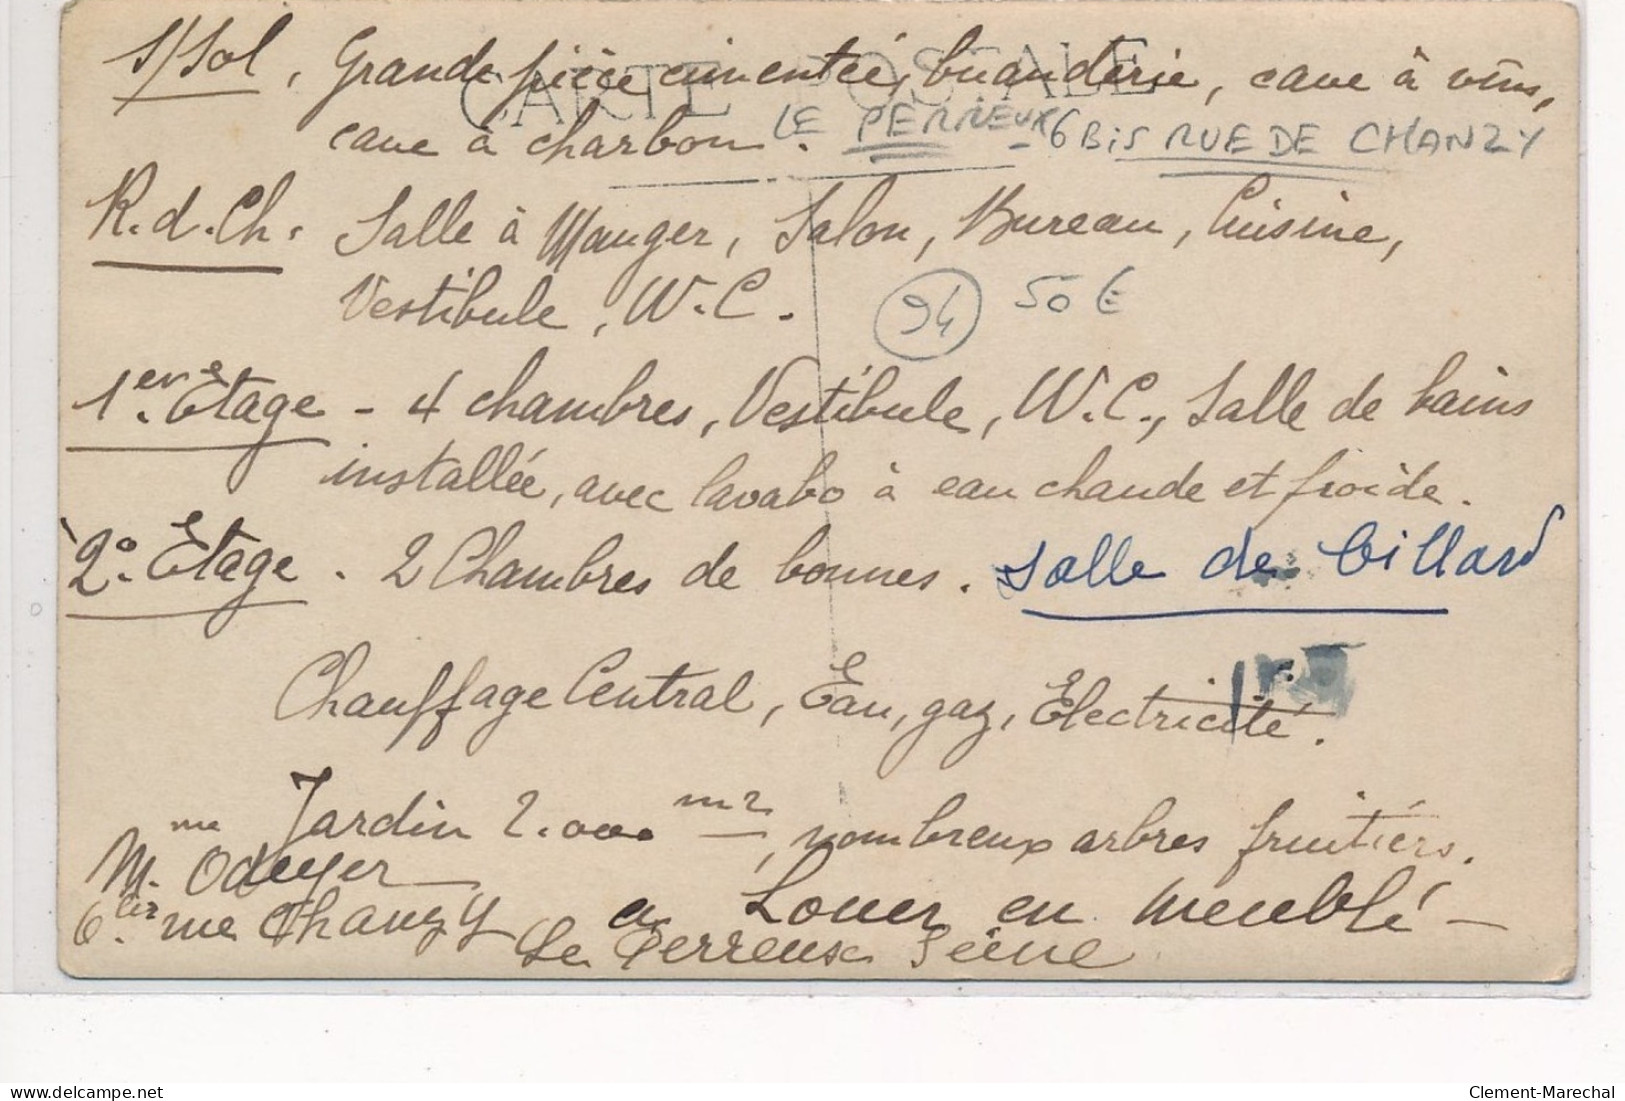 S/Sol, Grande pièce cimentée, buanderie, cave à vins,
CARTE POSTALE
cave à charbon.
LE PERREUX - 6 BIS RUE DE CHANZY
R.d.Ch. Salle à Manger, Salon, Bureau, Cuisine,
Vestibule, W.C.
94 50€
1er Etage - 4 chambres, Vestibule, W.C., Salle de bains
installée, avec lavabo à eau chaude et froide.
2° Etage. 2 Chambres de bonnes. Salle de billard
Chauffage Central, Eau, gaz, Electricité.
Jardin 2.000 m2, nombreux arbres fruitiers.
Mme
a Louer en meublé -
6bis rue Chanzy
Le Perreux Seine
delcampe.net
Clement-Marechal